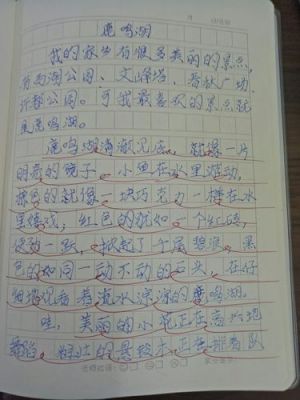 鹿鸣湖
我的家乡有很多美丽的景点,
有西湖公园、文峰塔、春秋广场、
许都公园。可我最喜欢的景点就
是鹿鸣湖。
鹿鸣湖清澈见底,就像一片
明亮的镜子,小鱼在水里游动,
棕色的就像一块巧克力一样在水
里嬉戏;红色的犹如一个红砖,
一跃,掀起了千层碧浪。黑
色的如同一动不动的石头,在仔
细端详着流水凉凉的鹿鸣湖。
哇,美丽的小花正在高兴地
舞蹈,粗壮的景较木正在排着队